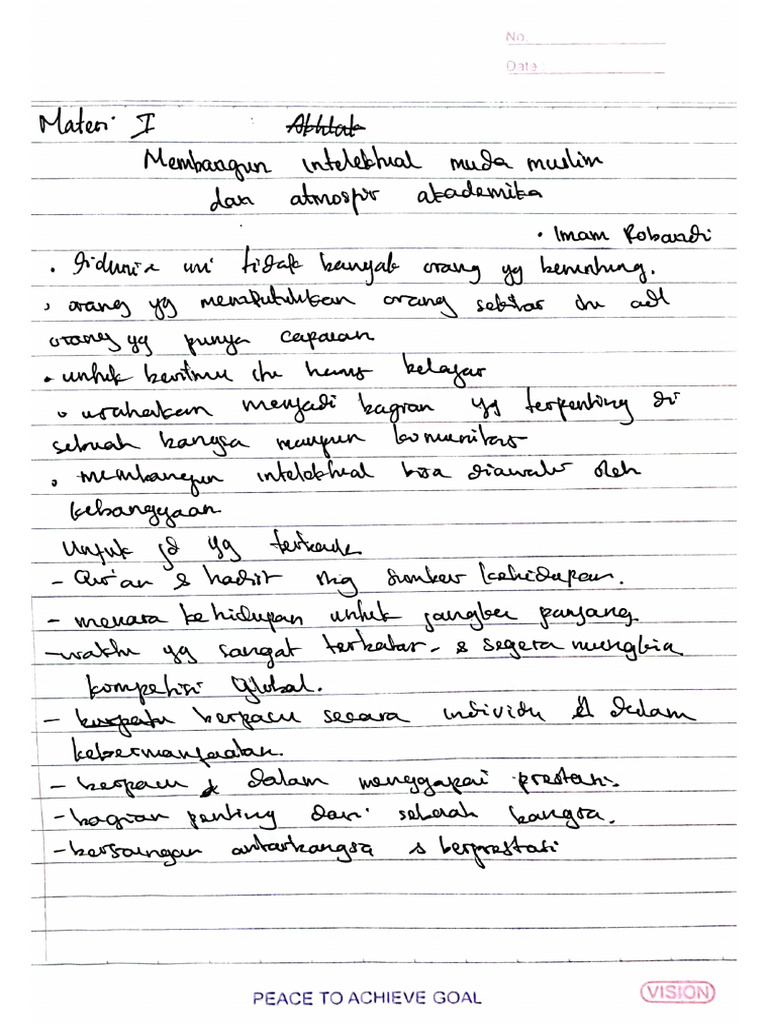 No.
Date
Materi I Akhlak
Membangun intelektual muda muslim
dan atmospir akademika
• Imam Robandi
• Didunia ini tidak banyak orang yg beruntung.
• orang yg membutuhkan orang sekitar itu adl
orang yg punya capaian
• untuk berilmu itu harus belajar
• usahakan menjadi bagian yg terpenting di
sebuah bangsa maupun komunitas
• membangun intelektual bisa diawali oleh
kebanggaan
Untuk jd yg terbaik
- Qur'an & hadist sumber kehidupan.
- menara kehidupan untuk jangka panjang
- waktu yg sangat terbatas - & segera
kompetisi Global.
- berpacu secara individu dalam
kebermanfaatan.
- berpacu dalam menggapai prestasi.
- bagian penting dari sebuah bangsa.
- bersaingan antarbangsa & berprestasi
PEACE TO ACHIEVE GOAL
VISION